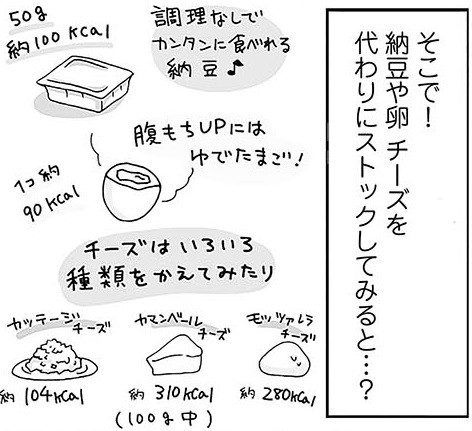 そこで!
納豆や卵 チーズを
代わりにストックしてみると…?
50g
約100Kcal
調理なしで
カンタンに食べれる
納豆♪
腹もちUPには
ゆでたまご!
1コ約
90Kcal
チーズはいろいろ
種類をかえてみたり
カッテージ
チーズ
約104Kcal
カマンベール
チーズ
約310Kcal
(100g中)
モッツァレラ
チーズ
約280Kcal